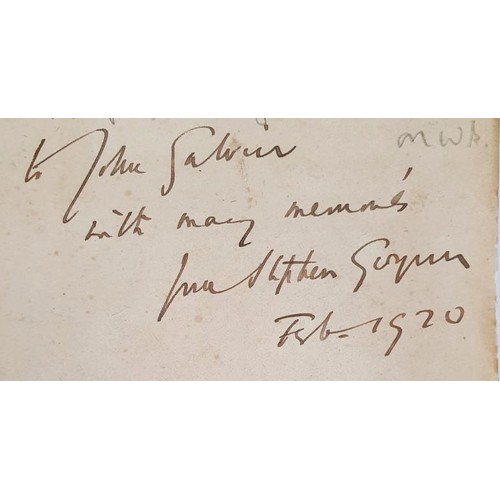 to John Galvin
with many memories
from Stephen Gwynn
Feb. 1920